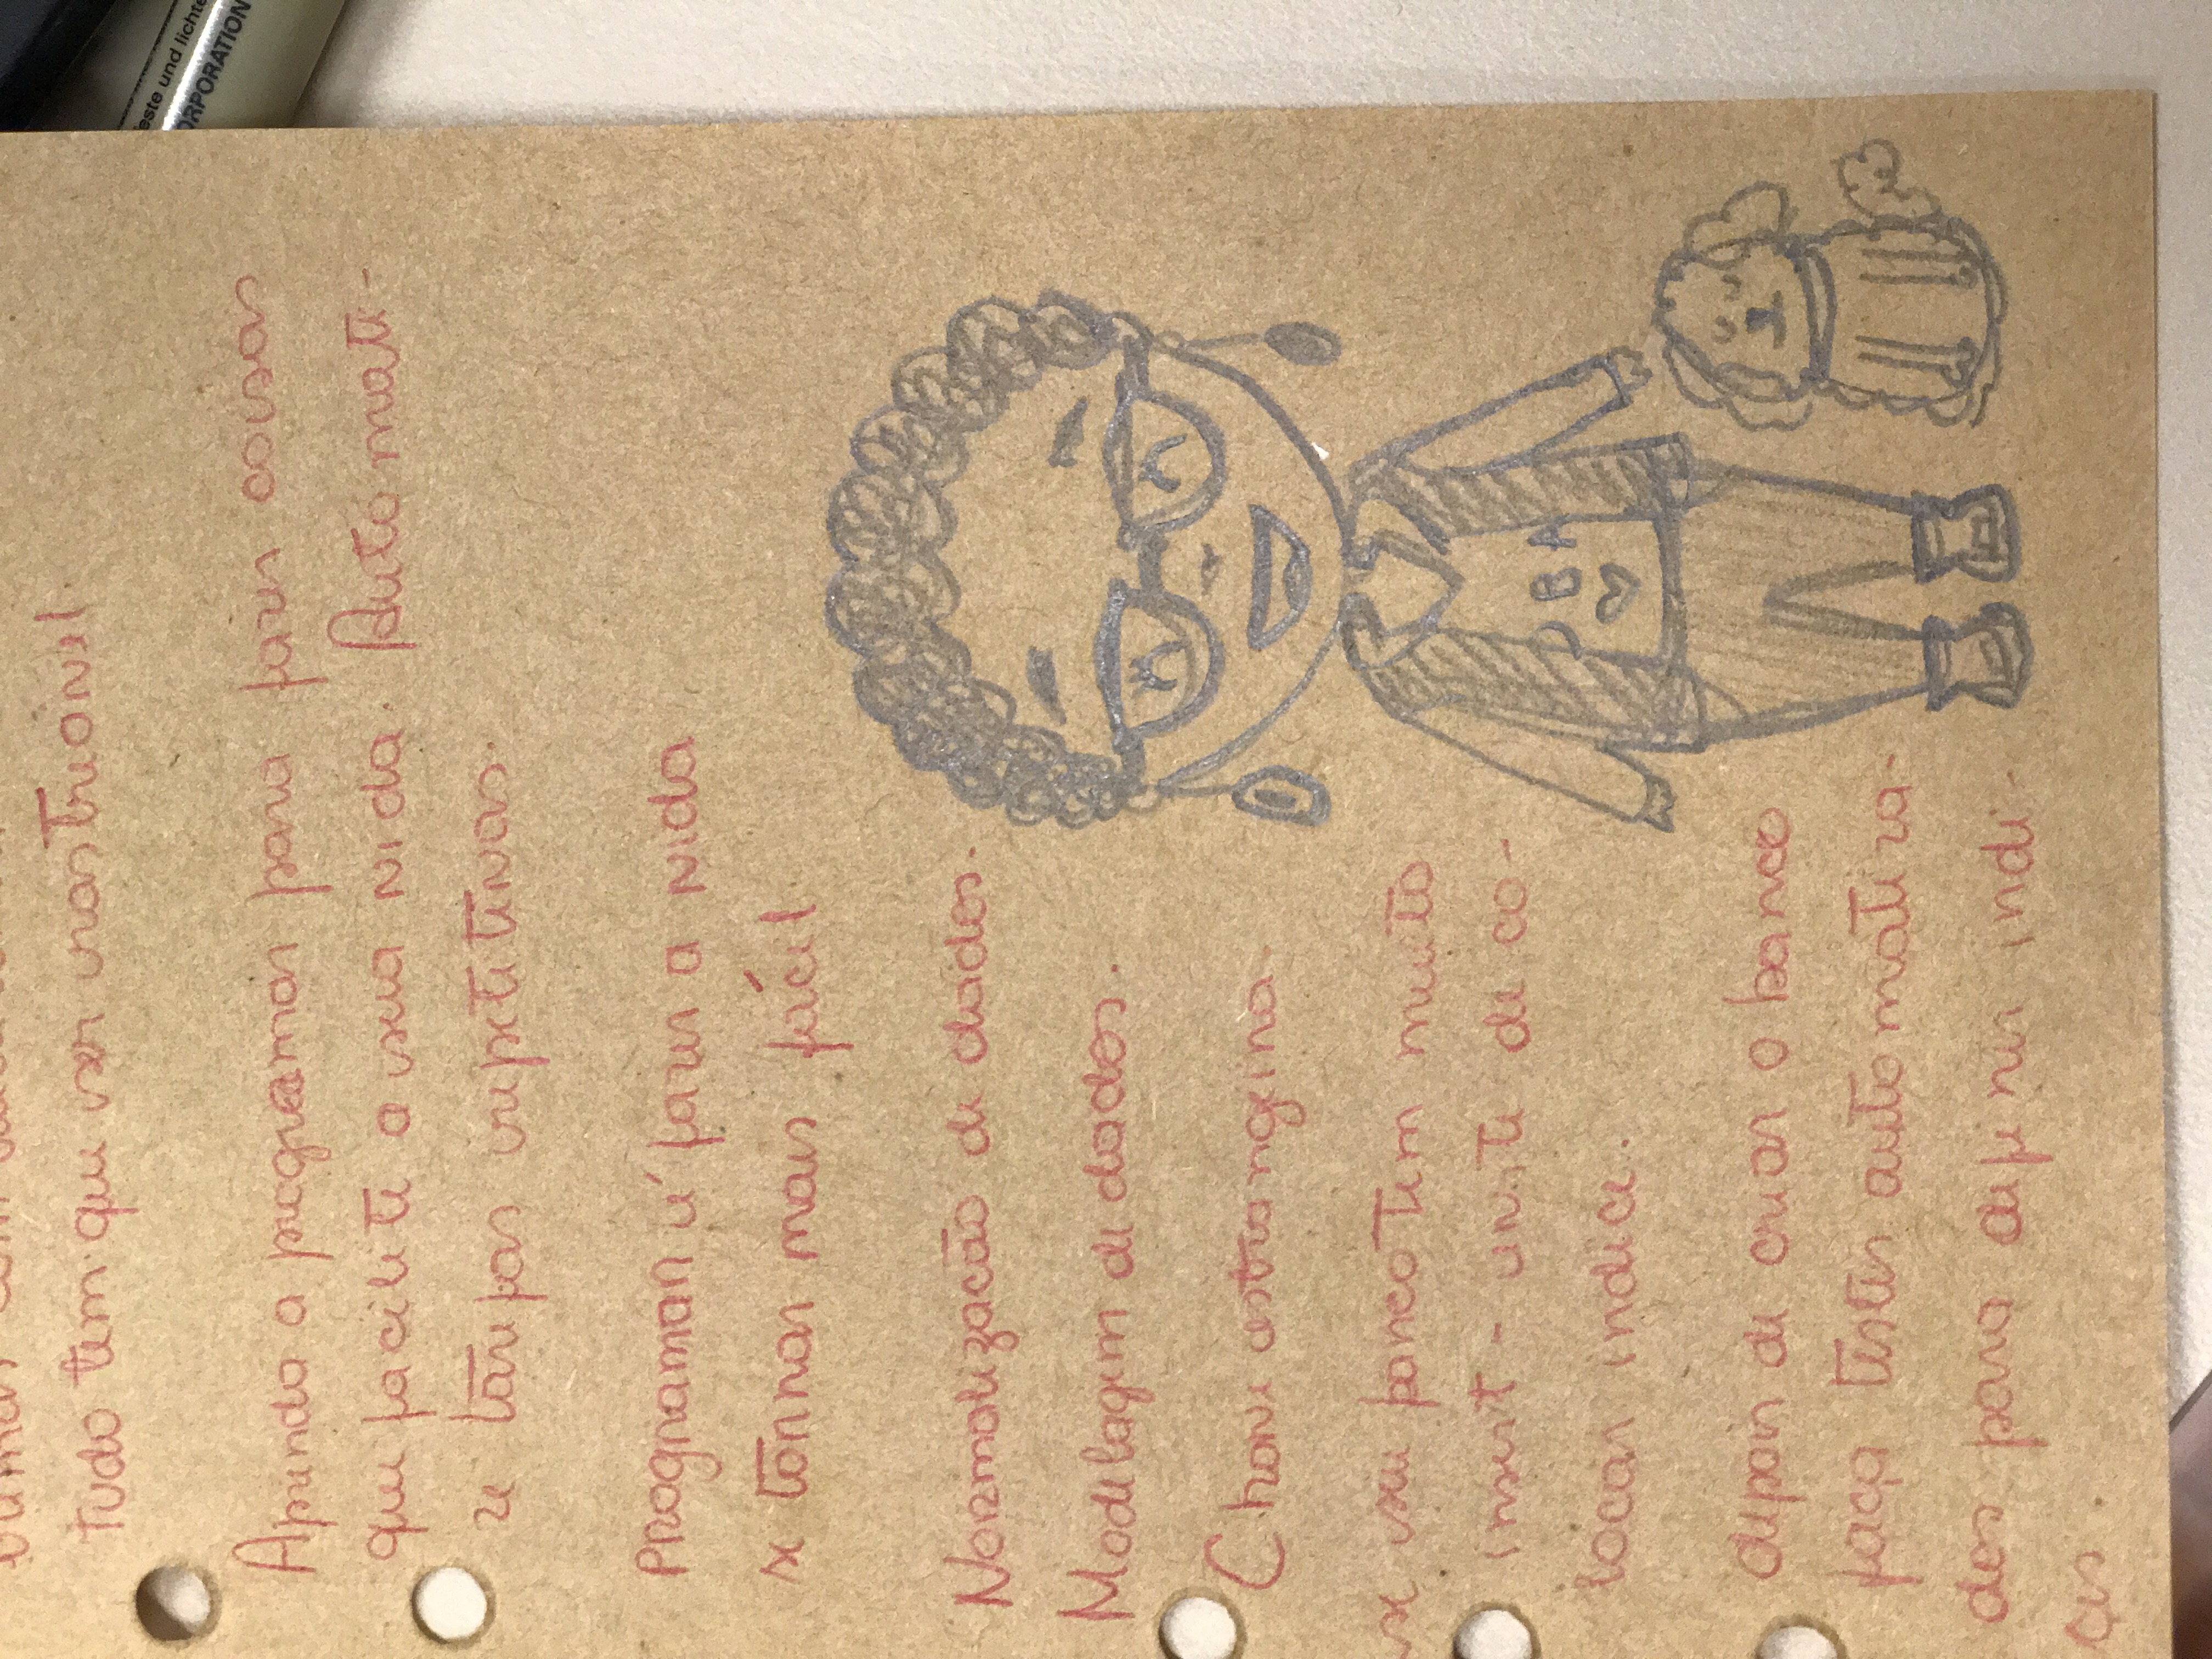 tudo tem que ser rastreável
este und lichte
ORPORATION
Aprenda a programar para fazer coisas
que facilite a sua vida. Automati-
ze tarefas repetitivas.
Programar é fazer a vida
se tornar mais fácil
Normalizacão de dados.
Modelagem de dados.
Chave estrangeira.
se seu banco tem muito
insert - evite de co-
locar indice.
DBA
depois de criar o banco
faça testes automatiza-
dos para definir indi-
çes.